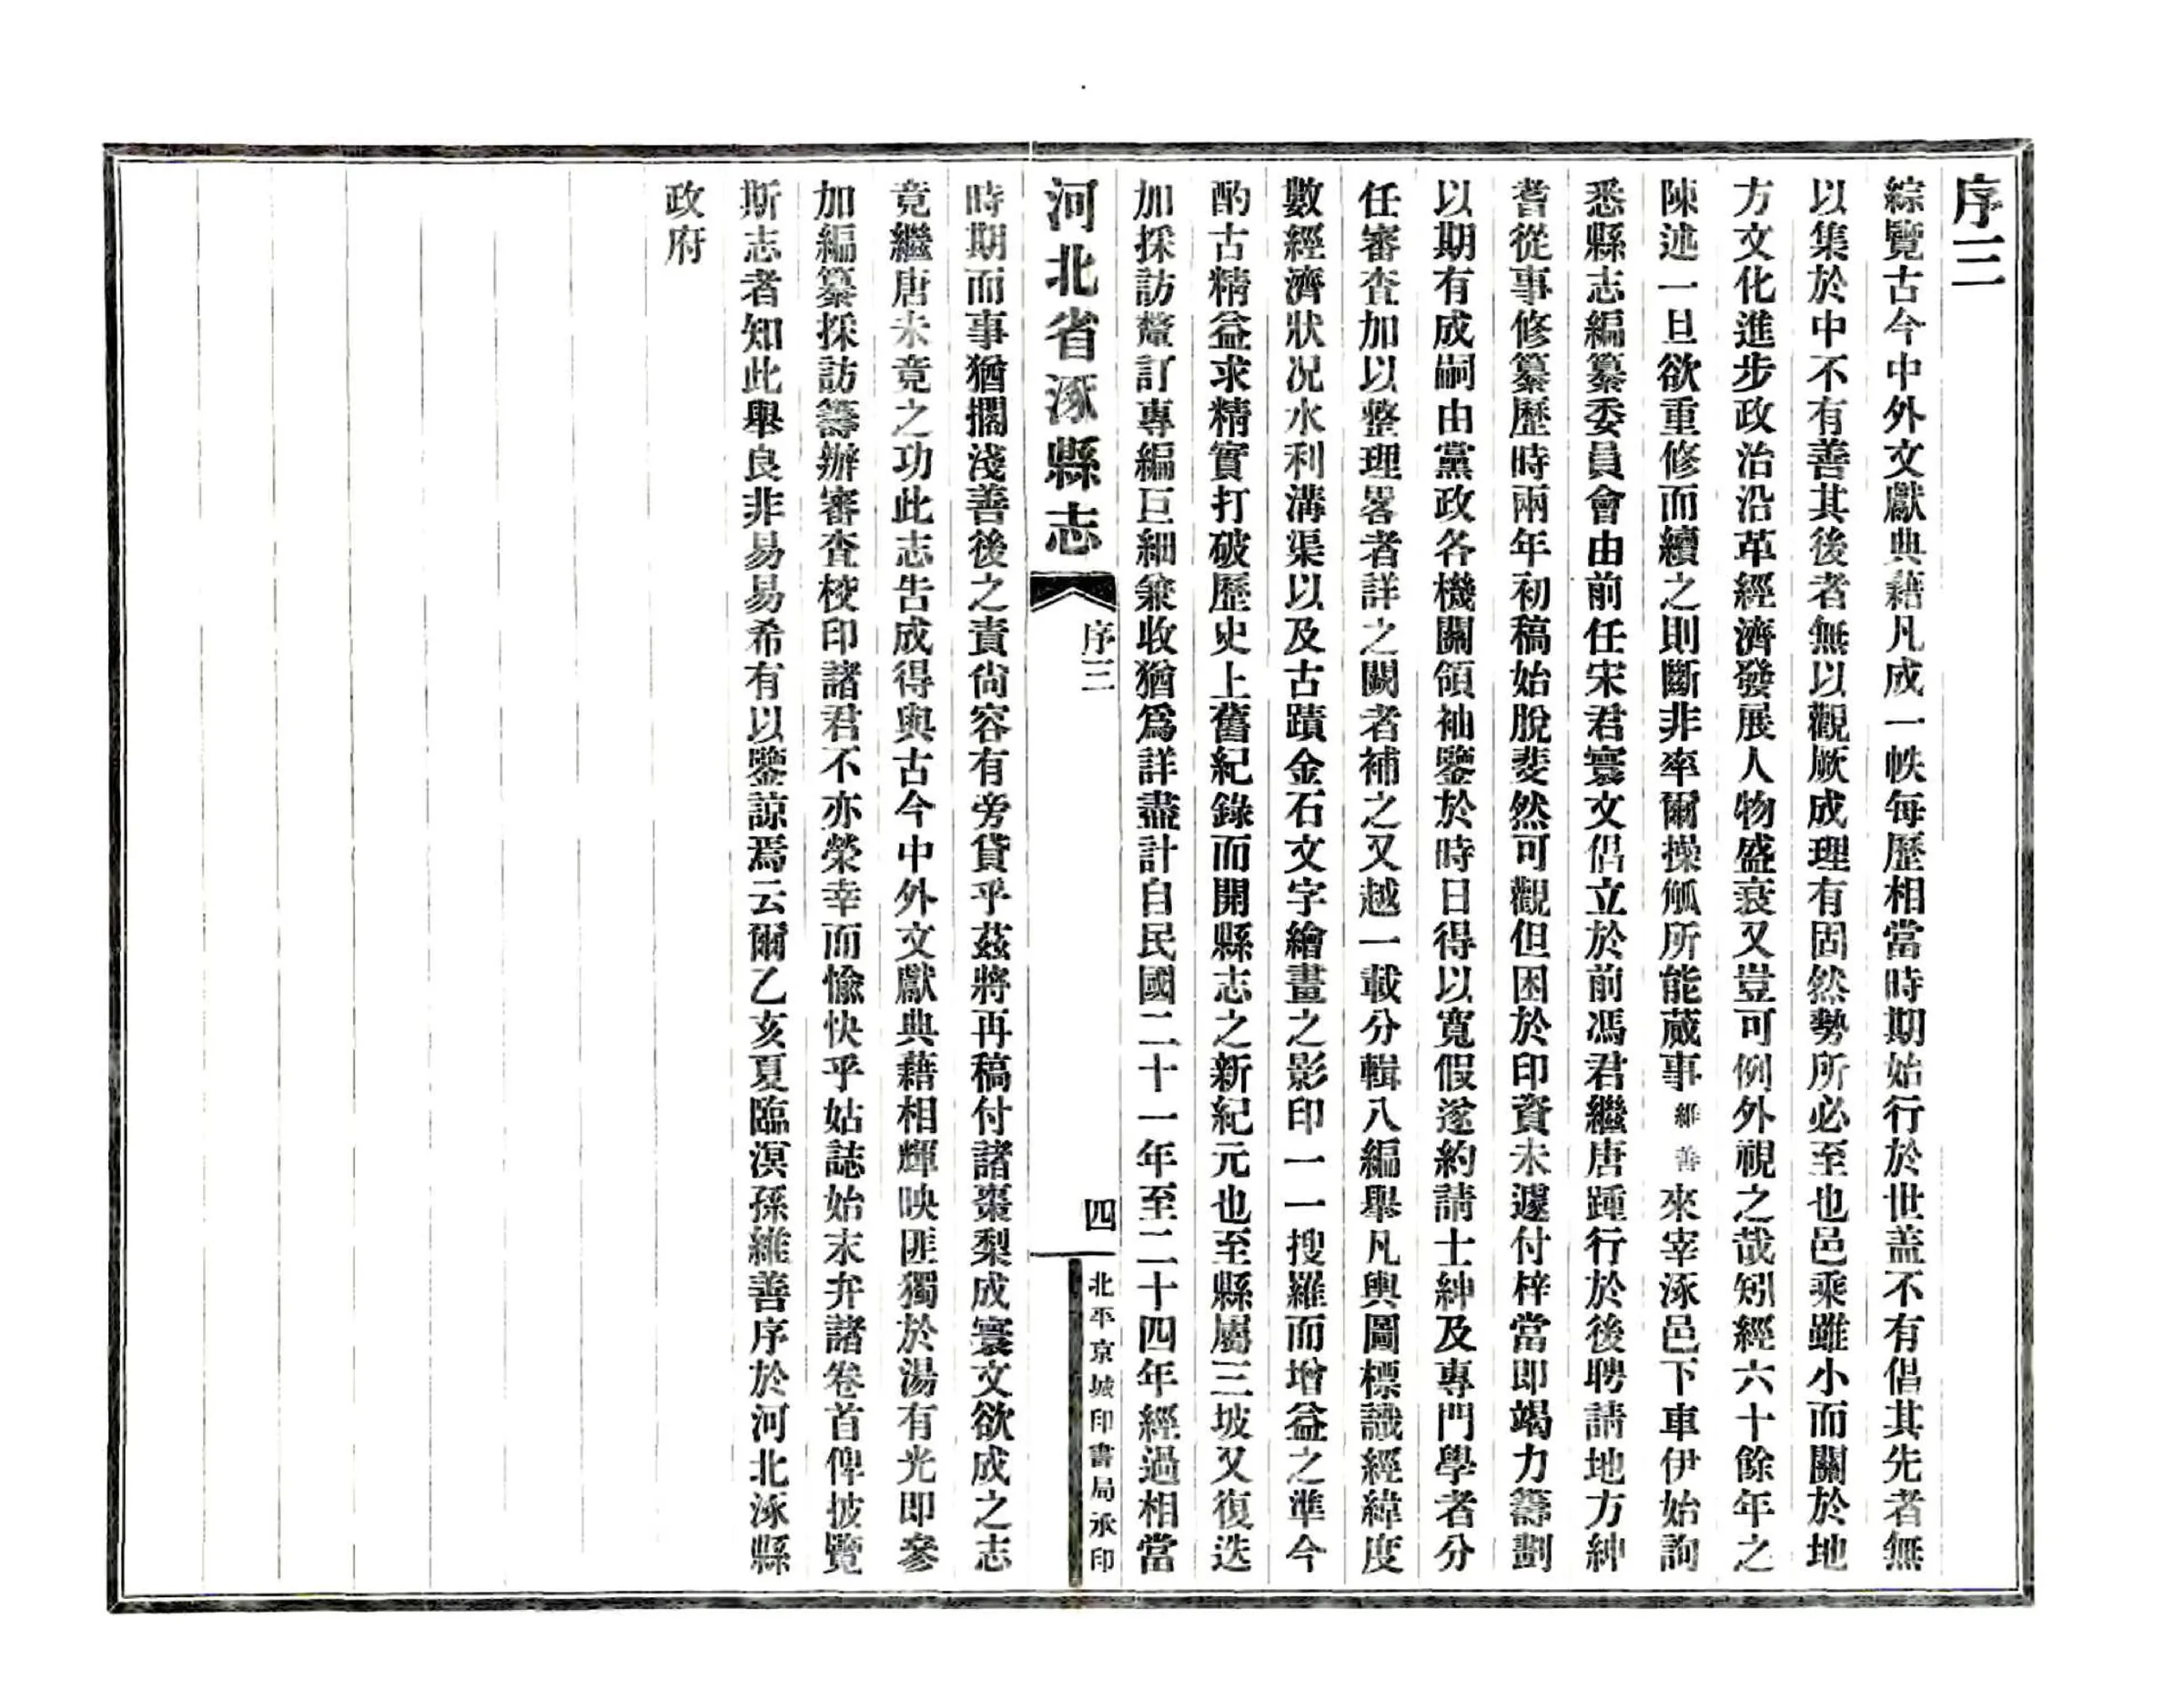 序三
綜覽古今中外文獻典藉凡成一帙每歷相當時期始行於世盖不有倡其先者無
以集於中不有善其後者無以觀厥成理有固然勢所必至也邑乘雖小而關於地
方文化進步政治沿革經濟發展人物盛衰又豈可例外視之哉矧經六十餘年之
陳述一旦欲重修而續之則斷非率爾操觚所能蕆事維善來宰涿邑下車伊始詢
悉縣志編纂委員會由前任宋君寰文倡立於前馮君繼唐踵行於後聘請地方紳
耆從事修纂歷時兩年初稿始脫斐然可觀但困於印資未遽付梓當即竭力籌劃
以期有成嗣由黨政各機關領袖鑒於時日得以寬假遂約請士紳及專門學者分
任審查加以整理畧者詳之闕者補之又越一載分輯八編舉凡輿圖標識經緯度
數經濟狀况水利溝渠以及古蹟金石文字繪畫之影印一一搜羅而增益之準今
酌古精益求精實打破歷史上舊紀錄而開縣志之新紀元也至縣屬三坡又復迭
加採訪釐訂專編巨細兼收猶爲詳盡計自民國二十一年至二十四年經過相當
河北省涿縣志
序三
四
北平京城印書局承印
時期而事猶擱淺善後之責尙容有旁貸乎茲將再稿付諸棗梨成寰文欲成之志
竟繼唐未竟之功此志告成得與古今中外文獻典藉相輝映匪獨於湯有光即參
加編纂採訪籌辦審查校印諸君不亦榮幸而愉快乎姑誌始末弁諸卷首俾披覽
斯志者知此舉良非易易希有以鑒諒焉云爾乙亥夏臨溟孫維善序於河北涿縣
政府